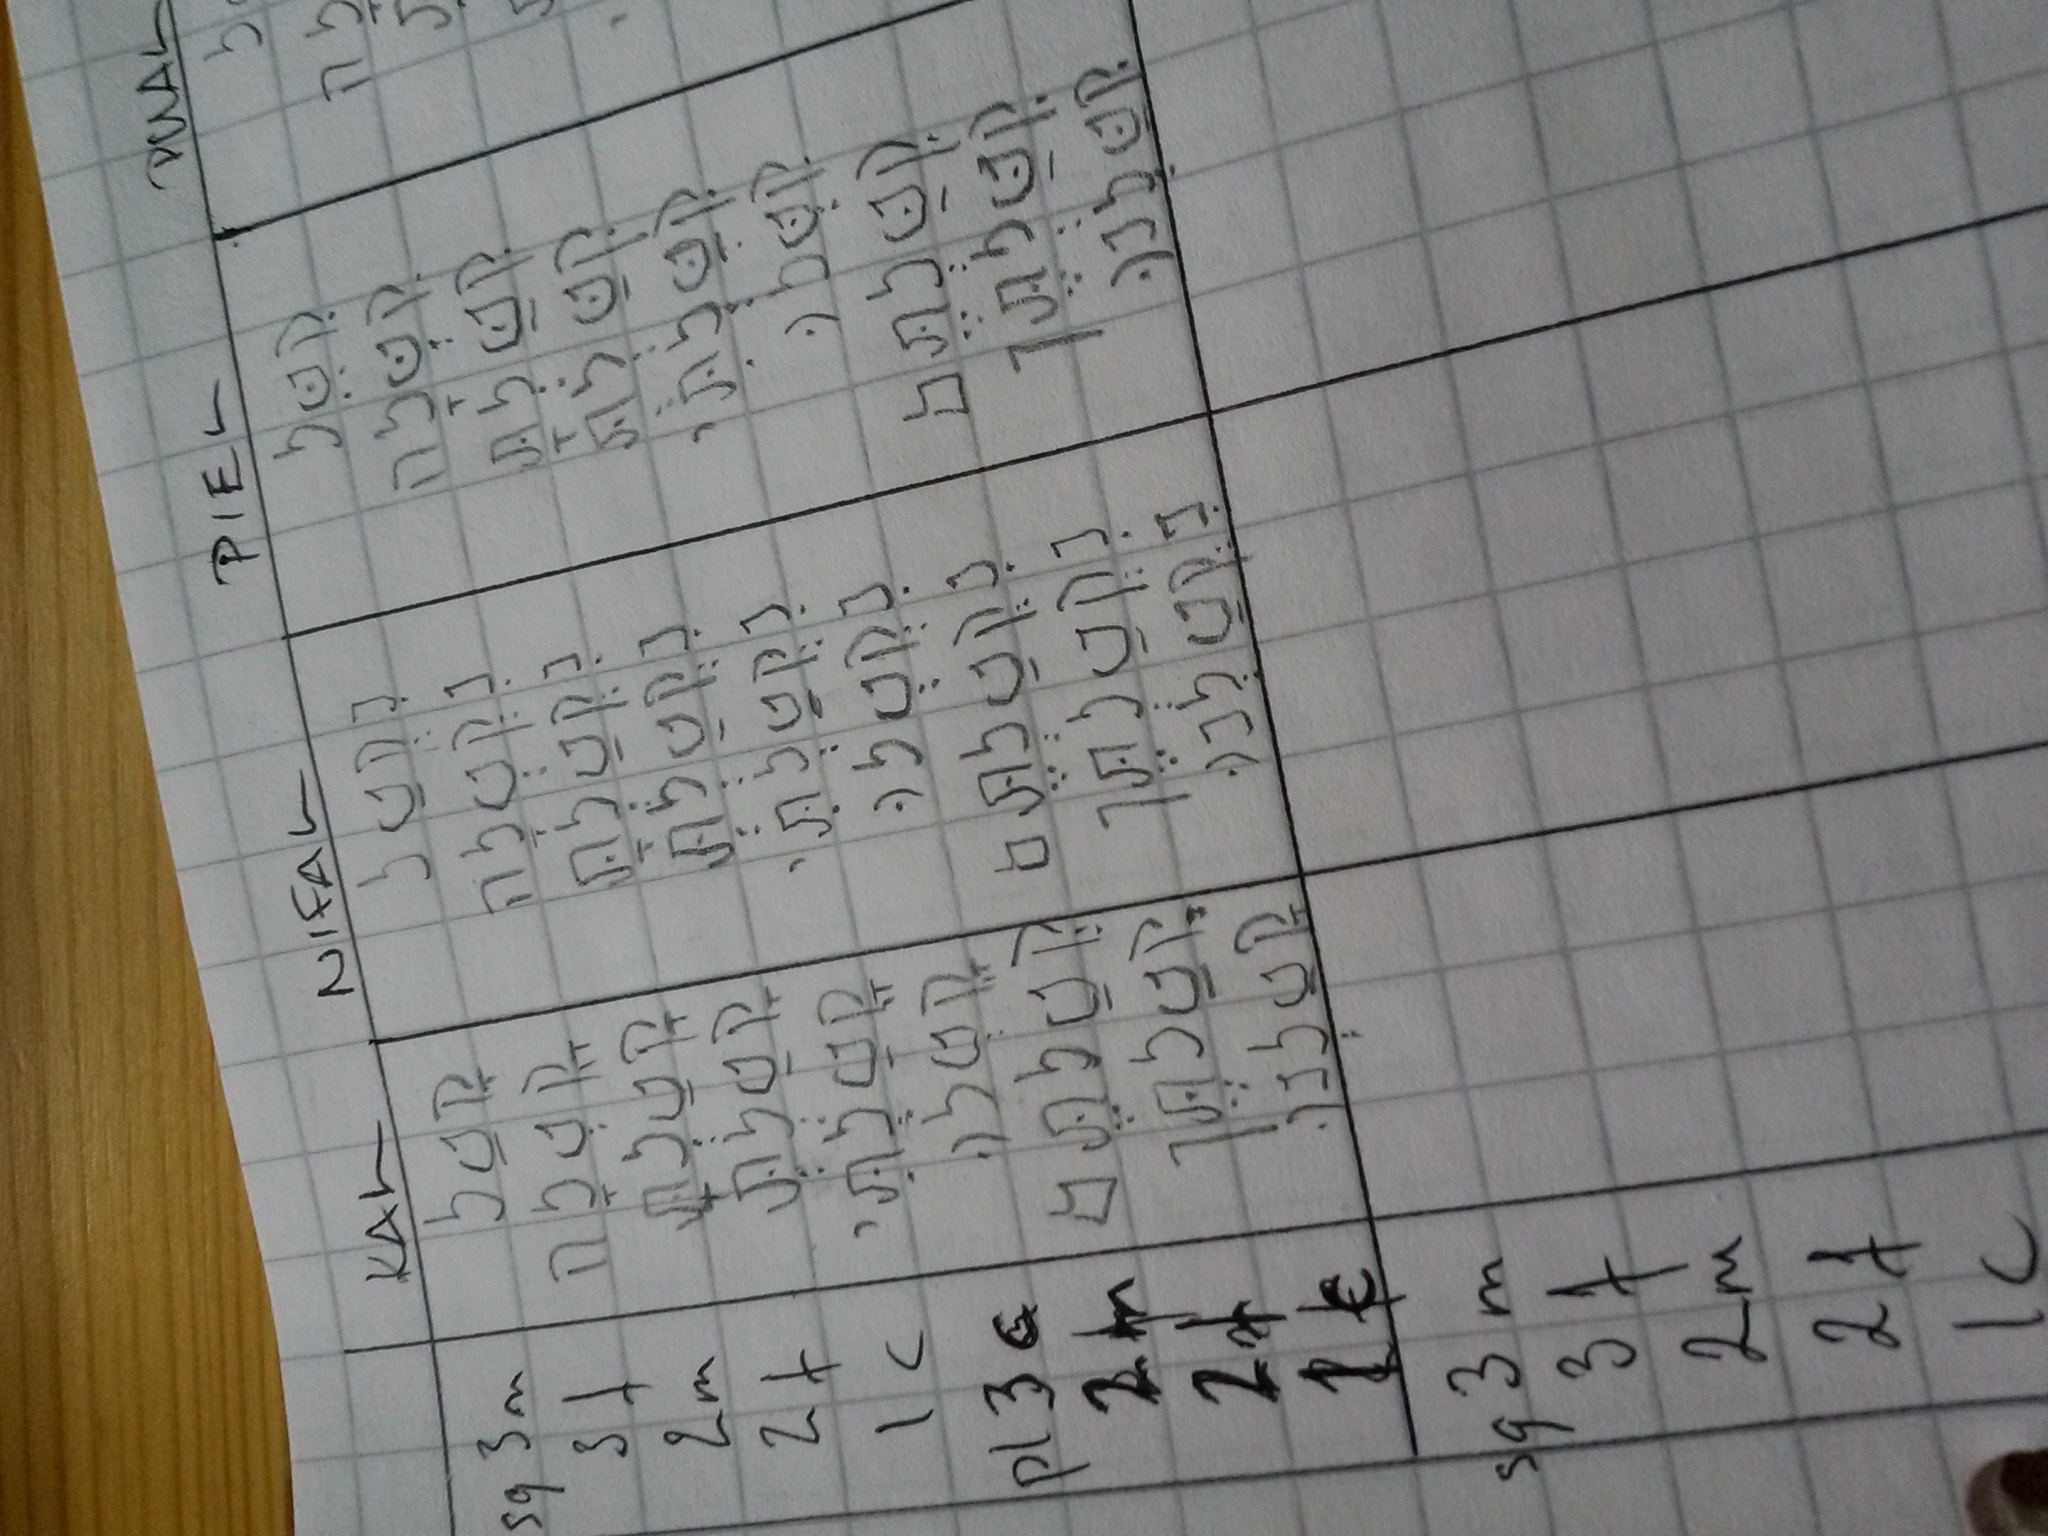 KAL NIFAL PIEL PUAL
sg 3m קָטַל נִקְטַל קִטֵּל
3f קָטְלָה נִקְטְלָה קִטְּלָה
2m קָטַלְתָּ נִקְטַלְתָּ קִטַּלְתָּ
2f קָטַלְתְּ נִקְטַלְתְּ קִטַּלְתְּ
1c קָטַלְתִּי נִקְטַלְתִּי קִטַּלְתִּי
pl 3c קָטְלוּ נִקְטְלוּ קִטְּלוּ
2m קְטַלְתֶּם נִקְטַלְתֶּם קִטַּלְתֶּם
2f קְטַלְתֶּן נִקְטַלְתֶּן קִטַּלְתֶּן
1c קָטַלְנוּ נִקְטַלְנוּ קִטַּלְנוּ
sg 3m
3f
2m
2f
1c